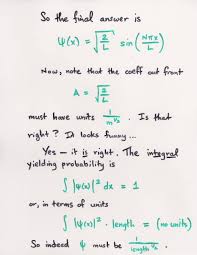 So the final answer is
ψ(x) = √(2/L) sin(nπx/L)
Now, note that the coeff out front
A = √(2/L)
must have units 1/m^½. Is that
right? It looks funny...
Yes – it is right. The integral
yielding probability is
∫ |ψ(x)|² dx = 1
or, in terms of units
∫ |ψ(x)|² · length = (no units)
So indeed ψ must be 1/length^½.